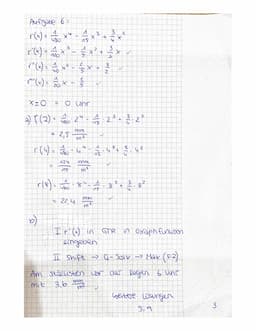 Aufgabe 6:
r(x) = 1/480 x⁴ - 1/15 x³ + 3/4 x²
r'(x) = 1/120 x³ - 1/5 x² + 3/2 x
r''(x) = 1/40 x² - 2/5 x + 3/2
r'''(x) = 1/20 x - 2/5
x=0 = 0 Uhr
a) r(2) = 1/480 · 2⁴ - 1/15 · 2³ + 3/4 · 2²
= 2,5
r(4) = 1/480 · 4⁴ - 1/15 · 4³ + 3/4 · 4²
r(8) = 1/480 · 8⁴ - 1/15 · 8³ + 3/4 · 8²
= 22,4
b)
I r'(x) in GTR in Graphfunktion
eingeben
II Shift → G-Solv → Max (F2)
Am stärksten war der Regen 6 Uhr
mit 3,6
weitere Lösungen
S. 9
3